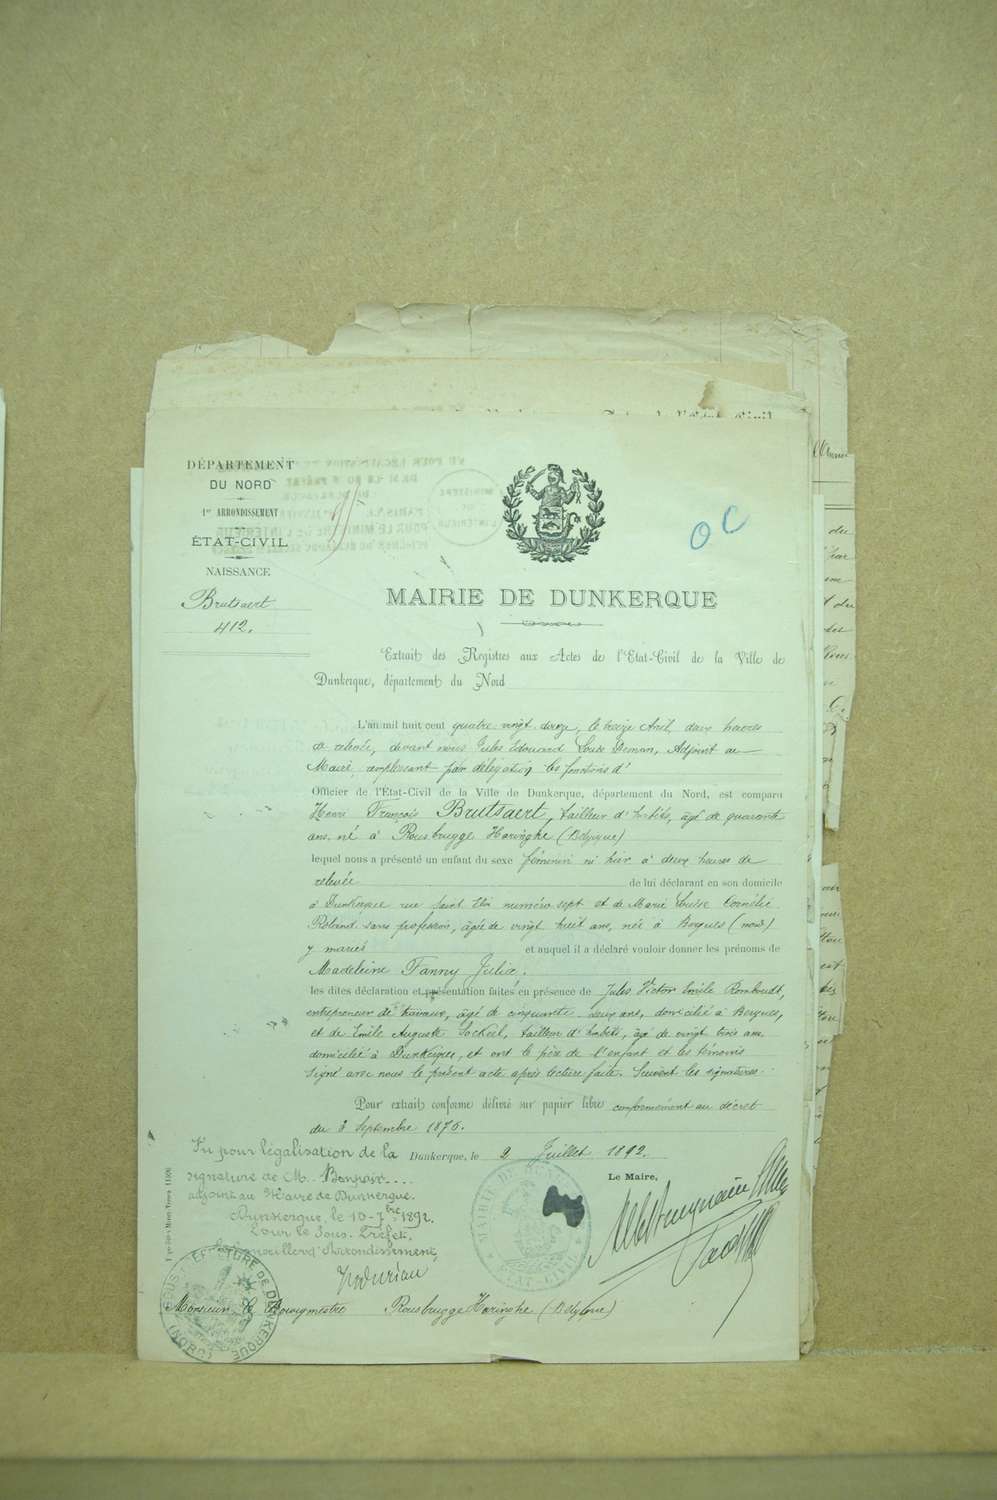 DÉPARTEMENT
DU NORD
1er ARRONDISSEMENT
ÉTAT-CIVIL
NAISSANCE
Brutsaert
412.
OC
MAIRIE DE DUNKERQUE
Extrait des Registres aux Actes de l'Etat-Civil de la Ville de
Dunkerque, département du Nord
L'an mil huit cent quatre vingt douze, le treize Avril, deux heures
de relevée, devant nous Jules Edouard Louis Deman, Adjoint au
Maire, remplissant par délégation les fonctions d'
Officier de l'Etat-Civil de la Ville de Dunkerque, département du Nord, est comparu
Henri François Brutsaert, tailleur d'habits, âgé de quarante
ans, né à Rousbrugge Haringhe (Belgique)
lequel nous a présenté un enfant du sexe féminin né hier à deux heures de
relevée de lui déclarant en son domicile
à Dunkerque rue Saint numéro sept et de Marie Louise Cornélie
sans profession, âgée de vingt huit ans, née à Bergues (nord)
y mariés et auquel il a déclaré vouloir donner les prénoms de
Madeleine Fanny Julie.
les dites déclaration et présentation faites en présence de Jules Victor Emile Romboudt,
entrepreneur de travaux, âgé de cinquante deux ans, domicilié à Bergues,
et de Emile Auguste tailleur d'habits, âgé de vingt trois ans,
domicilié à Dunkerque, et ont le père de l'enfant et les témoins
signé avec nous le présent acte après lecture faite. Suivent les signatures.
Pour extrait conforme délivré sur papier libre conformément au décret
du 3 Septembre 1876.
Dunkerque, le 2 Juillet 1892.
Le Maire,
Vu pour légalisation de la
signature de M.
adjoint au Maire de Dunkerque.
Dunkerque, le 10-7bre 1892.
Pour le Sous-Préfet,
Le Conseiller d'Arrondissement,
MAIRIE DE DUNKERQUE
ETAT-CIVIL
SOUS-PREFECTURE DE DUNKERQUE
(NORD)
Monsieur le Bourgmestre Rousbrugge Haringhe (Belgique)